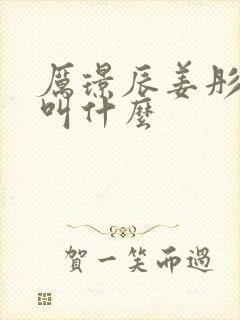 厲璟辰姜彤
叫什麼
賀一笑而過